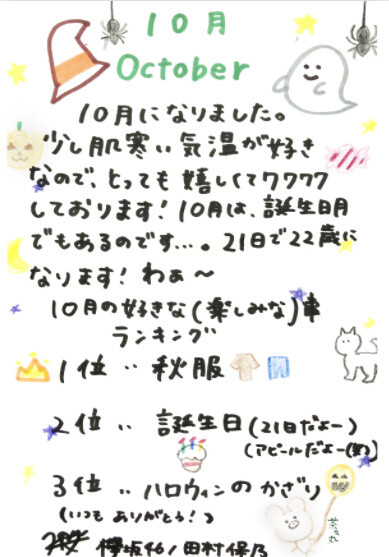 10月
October
10月になりました。
少し肌寒い気温が好き
なので、とっても嬉しくてワクワク
しております！10月は、誕生日月
でもあるのです…。21日で22歳に
なります！わぁ〜
10月の好きな(楽しみな)事
ランキング
1位‥秋服
2位‥誕生日(21日だよー)
(アピールだよー(笑))
3位‥ハロウィンのかざり
(いつもありがとう！)
欅坂46/田村保乃